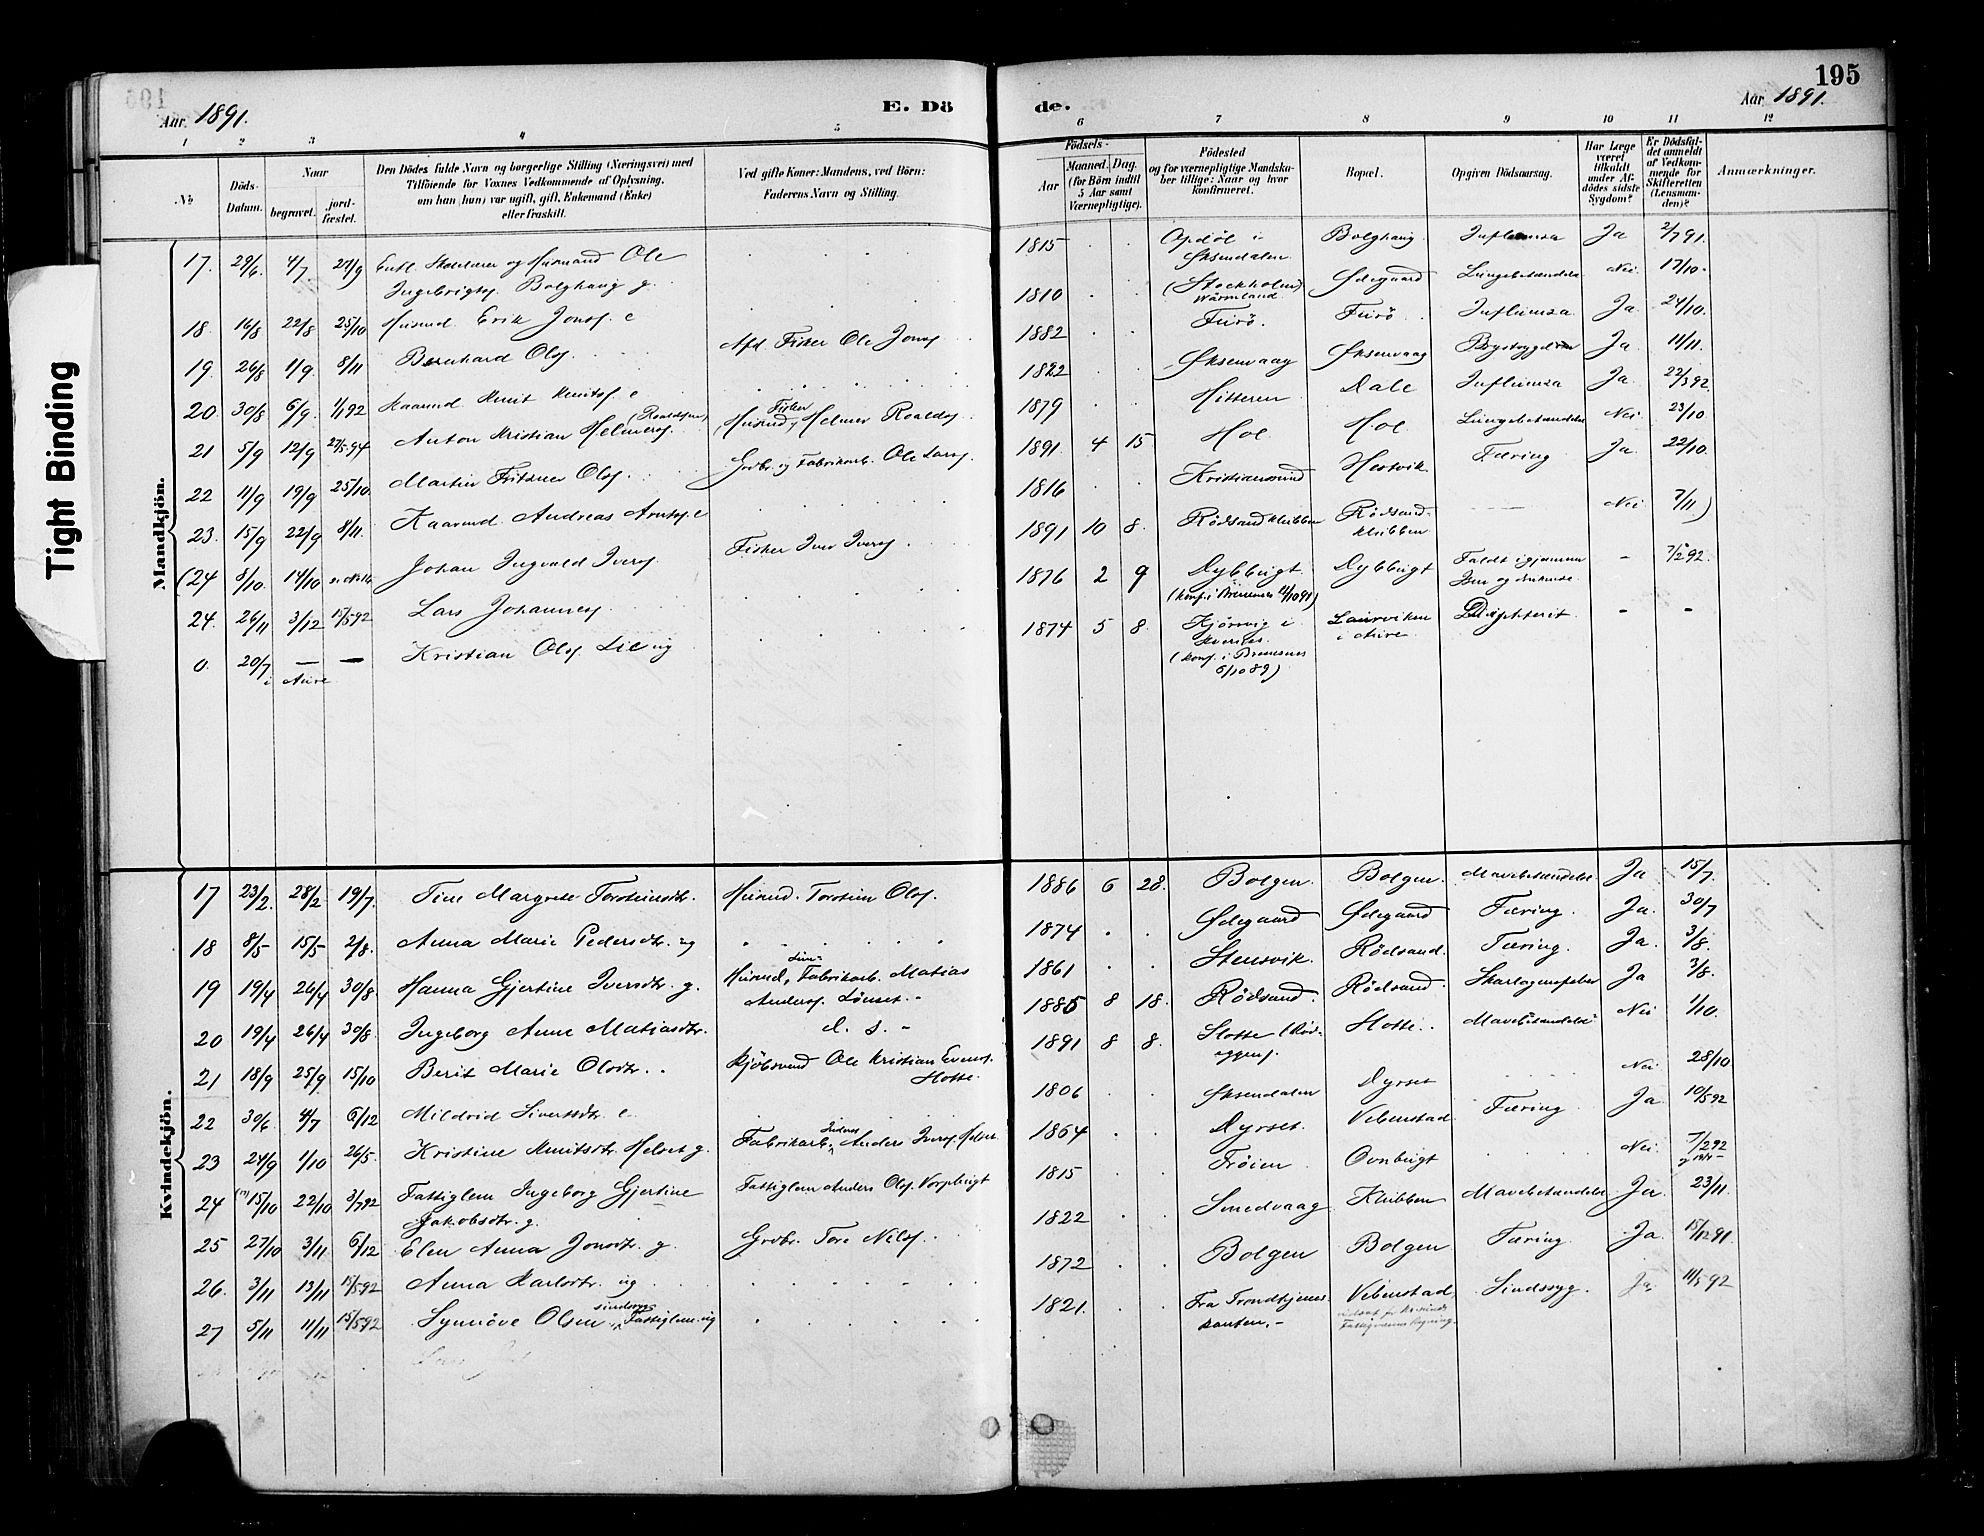 195
Aar 1891.
E. Dö
de.
Aar 1891.
1 2 3 4 5 6 7 8 9 10 11 12
No
Döds-Datum.
Naar
begravet.
jord-fæstet.
Den Dödes fulde Navn og borgerlige Stilling (Næringsvei) med
Tilföiende for Voxnes Vedkommende af Oplysning,
om han (hun) var ugift, gift, Enkemand (Enke)
eller fraskilt.
Ved gifte Koner: Mandens, ved Börn:
Faderens Navn og Stilling.
Födsels-
Aar
Maaned. Dag.
(for Börn indtil
5 Aar samt
Værnepligtige).
Födested
og for værnepligtige Mandska-
ber tillige: Naar og hvor
konfirmeret.
Bopæl.
Opgiven Dödsaarsag.
Har Læge
været
tilkaldt
under Af-
dödes sidste
Sygdom?
Er Dödsfal-
det anmeldt
af Vedkom-
mende for
Skifteretten
(Lensman-
den)?
Anmærkninger.
Tight Binding
Mandkjön.
17. 29/6. 4/7 27/9 og Husmand Ole 1815 Opdöl i Bolghaug Influenza Ja 2/7 91.
Ingebrigts. Bolghaug g. Øksendalen
18. 16/8 22/8 25/10 Husmd. Erik Jons. e 1810 (Stockholm) Ødegaard Lungebetændelse Nei 17/10
Wärmland
19. 26/8 1/9. 8/11 Bernhard Ols. Afd. Fisker Ole Jons. 1882 Furö. Furö Influenza Ja 24/10.
20 30/8 6/9. 1/1 92 Kaarmd. Knut Knuts. e 1822 Øksenvaag Øksenvaag Ja 11/11.
21 5/9 12/9 27/5 94 Anton Kristian Helmers. (Roaldsen) Husmd, Fisker Helmer Roalds. 1879 Hitteren Dale Influenza Ja 22/3 92
22 11/9 19/9 25/10. Martin Fritzner Ols. Grdbr. og Fabrikarb. Ole Lars. 1891 4 15 Hol Hol Lungebetændelse Nei 23/10
23. 15/9 22/9 8/11. Kaarmd. Andreas Arnts. e 1816 Kristianssund Hestvik Tæring Ja 22/10.
(24 8/10. 14/10 Johan Ingvald Ivers. Fisker Iver Ivers. 1891 10 8. Rödsandklubben Rödsand-klubben Nei 7/11)
24. 26/11 3/12 15/5 92 Lars Johannes. 1876 2 9 Dybbugt Dybbugt Faldt igjennem 7/2 92.
(konf. i Bremsnes 11/10 91) Isen og druknede.
0. 20/7 — — Kristian Ols. Lie ug 1874 5 8. Kjörsvig i Laurviken Difterit - -
i Aure Kvernes i Aure.
(konf. i Bremsnes
6/10 89)
Kvindekjön.
17 23/2. 28/2 19/7. Tine Margrete Torsteinsdtr. Husmd. Torstein Ols. 1886 6 28. Bolgen. Bolgen. Mavebetændelse Ja 15/7.
18 8/5 15/5 2/8. Anna Marie Pedersdtr. ug 1874 Ødegaard Ødegaard Tæring. Ja. 30/7
19 19/4 26/4 30/8. Hanna Gjertine Iversdtr. g. Husmd, Fabrikarb. Matias 1861 Stensvik. Rödsand. Tæring. Ja. 3/8.
Anders. Löuset.
20 19/4 26/4 30/8. Ingeborg Anne Matiasdtr. d. s. 1885 8 18. Rödsand. Rödsand. Skarlagensfeber Ja 3/8.
21 18/9 25/9 15/10 Berit Marie Olsdtr. Kjöbmand Ole Kristian Evens. 1891 8 8. Hotte Hotte. Mavebetændelse Nei 1/10.
Hotte.
22 30/6 4/7 6/12 Mildrid Siversdtr. e 1806 Øksendalen Dyrset Nei 28/10
23 24/9 1/10 26/5. Kristine Knutsdtr. Helset g. Fabrikarb. Anders Ivers. Helset 1864 Dyrset. Vebenstad Tæring Ja 10/5 92
24 15/10 22/10 3/7 92 Fattiglem Ingeborg Gjertine Fattiglem Anders Ols. 1815 Tröien Ovnbugt Nei. 7/2 92
Jakobsdtr. g.
25 27/10 3/11 6/12 Elen Anna Jonsdtr. g. Grdbr. Tore Nils. 1822 Smedvaag Klubben Mavebetændelse Ja 23/11.
26. 3/11 13/11 15/5 92 Anna Karlsdtr. ug 1872 Bolgen Bolgen Tæring. Ja 15/12 91
27 5/11 11/11 15/5 92 Synnöve Olsen sindssyg Fattiglem ug 1821 Fra Trondhjems- Vebenstad Sindssyg. Ja 11/5 92
kanten.